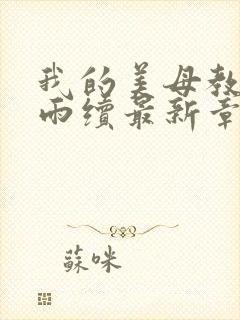 我的美母教
雨續最新章
蘇咪